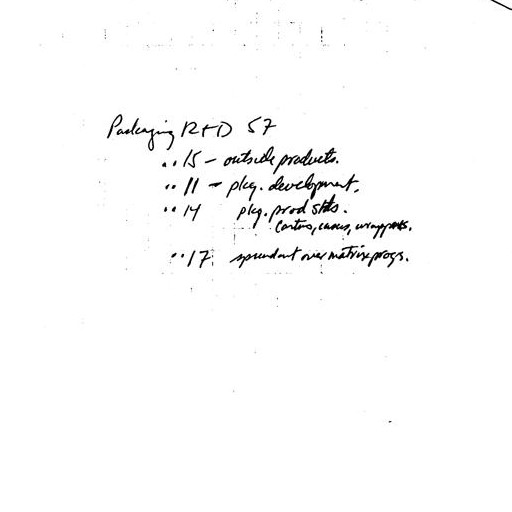 Packaging R+D 57
.. 15 - outside products.
.. 11 - pkg. development.
.. 14 pkg. prod stds.
Cartons, cases, wrappers.
.. 17 over matrix progs.